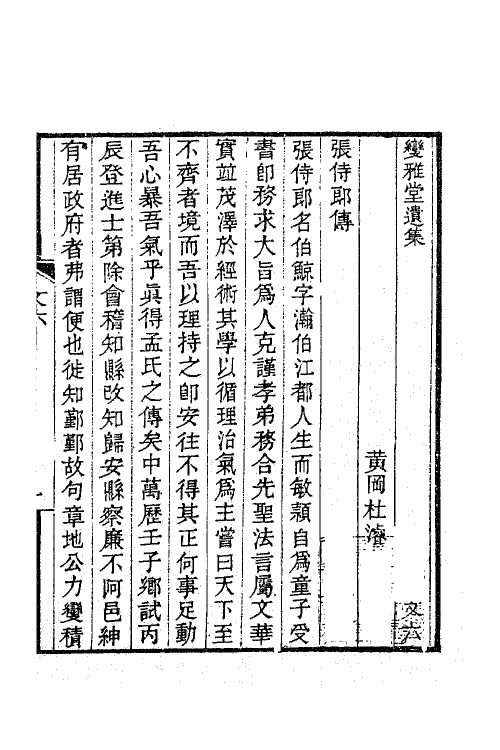 變雅堂遺集
文六
黃岡杜濬
張侍郎傳
張侍郎名伯鯨字瀚伯江都人生而敏頴自爲童子受
書卽務求大旨爲人克謹孝弟務合先聖法言屬文華
實竝茂澤於經術其學以循理治氣爲主嘗曰天下至
不齊者境而吾以理持之卽安往不得其正何事足動
吾心暴吾氣乎眞得孟氏之傳矣中萬歷壬子鄉試丙
辰登進士第除會稽知縣改知歸安縣察廉不阿邑紳
有居政府者弗謂便也徙知鄞鄞故句章地公力變積
文六
一